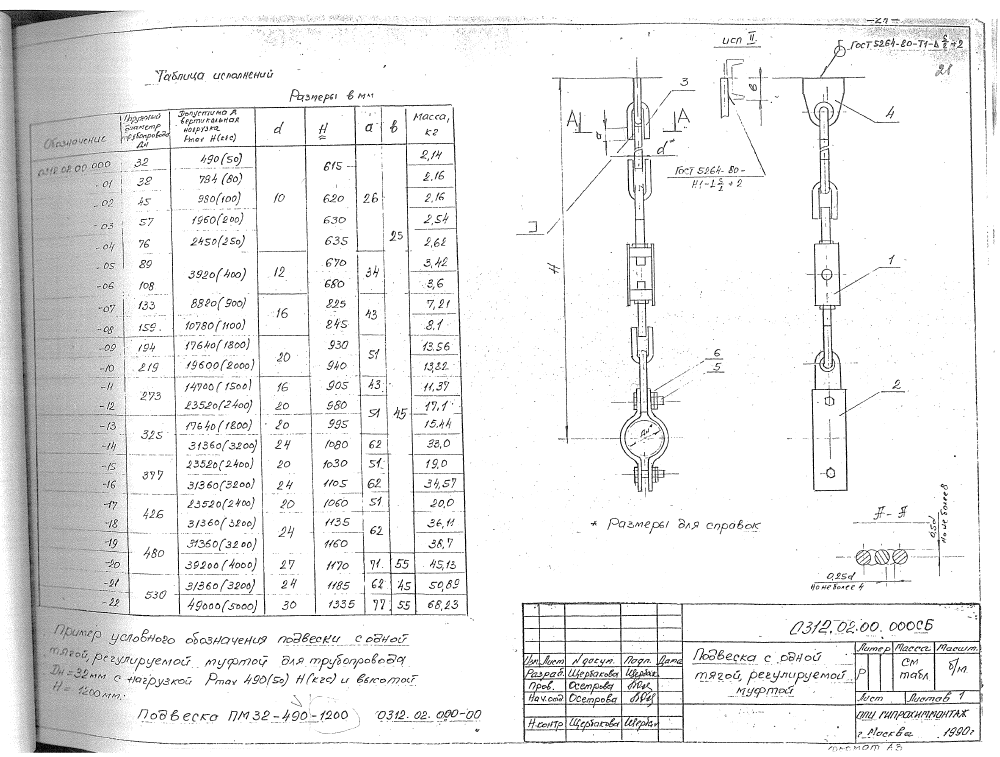 Таблица исполнений
Размеры в мм
Обозначение | Наружный диаметр трубопровода Дн | Допустимая вертикальная нагрузка Pmax Н(кгс) | d | H | a | в | Масса, кг
Л312.02.00.000 | 32 | 490(50) | 10 | 615 | 26 | 25 | 2,14
-01 | 38 | 784(80) | 2,16
-02 | 45 | 980(100) | 620 | 2,16
-03 | 57 | 1960(200) | 630 | 2,54
-04 | 76 | 2450(250) | 635 | 2,62
-05 | 89 | 3920(400) | 12 | 670 | 34 | 3,42
-06 | 108 | 680 | 3,6
-07 | 133 | 8820(900) | 16 | 825 | 43 | 7,21
-08 | 159 | 10780(1100) | 845 | 8,1
-09 | 194 | 17640(1800) | 20 | 930 | 51 | 45 | 13,56
-10 | 219 | 19600(2000) | 940 | 13,82
-11 | 273 | 14700(1500) | 16 | 905 | 43 | 11,37
-12 | 23520(2400) | 20 | 980 | 51 | 17,1
-13 | 325 | 17640(1800) | 20 | 995 | 15,44
-14 | 31360(3200) | 24 | 1080 | 62 | 33,0
-15 | 377 | 23520(2400) | 20 | 1030 | 51 | 19,0
-16 | 31360(3200) | 24 | 1105 | 62 | 34,57
-17 | 426 | 23520(2400) | 20 | 1060 | 51 | 20,0
-18 | 31360(3200) | 24 | 1135 | 62 | 36,11
-19 | 480 | 31360(3200) | 1160 | 38,7
-20 | 39200(4000) | 27 | 1170 | 71 | 55 | 45,13
-21 | 530 | 31360(3200) | 24 | 1185 | 62 | 45 | 50,89
-22 | 49000(5000) | 30 | 1335 | 77 | 55 | 68,23
Пример условного обозначения подвески с одной
тягой, регулируемой муфтой для трубопровода
Дн=32мм с нагрузкой Pmax 490(50) Н(кгс) и высотой
H= 1200мм:
Подвеска ПМ32-490-1200 Л312.02.000-00
-21-
21
исп II.
ГОСТ 5264-80-Т1-
3
4
А А
в
d*
ГОСТ 5264-80-
Н1-
H
1
6
5
2
Дн*
* Размеры для справок
А-А
0,5d
Но не более 8
0,25d
Но не более 4
Л312.02.00.000СБ
Изм. Лист N докум. Подп. Дата
Разраб. Щербакова
Пров. Осетрова
Нач.отд Осетрова
Н.контр Щербакова
Подвеска с одной
тягой, регулируемой
муфтой
Литер Масса Масшт.
Р см табл б/м.
Лист Листов 1
ГИПРОХИММОНТАЖ
г. Москва 1990г
Формат А3